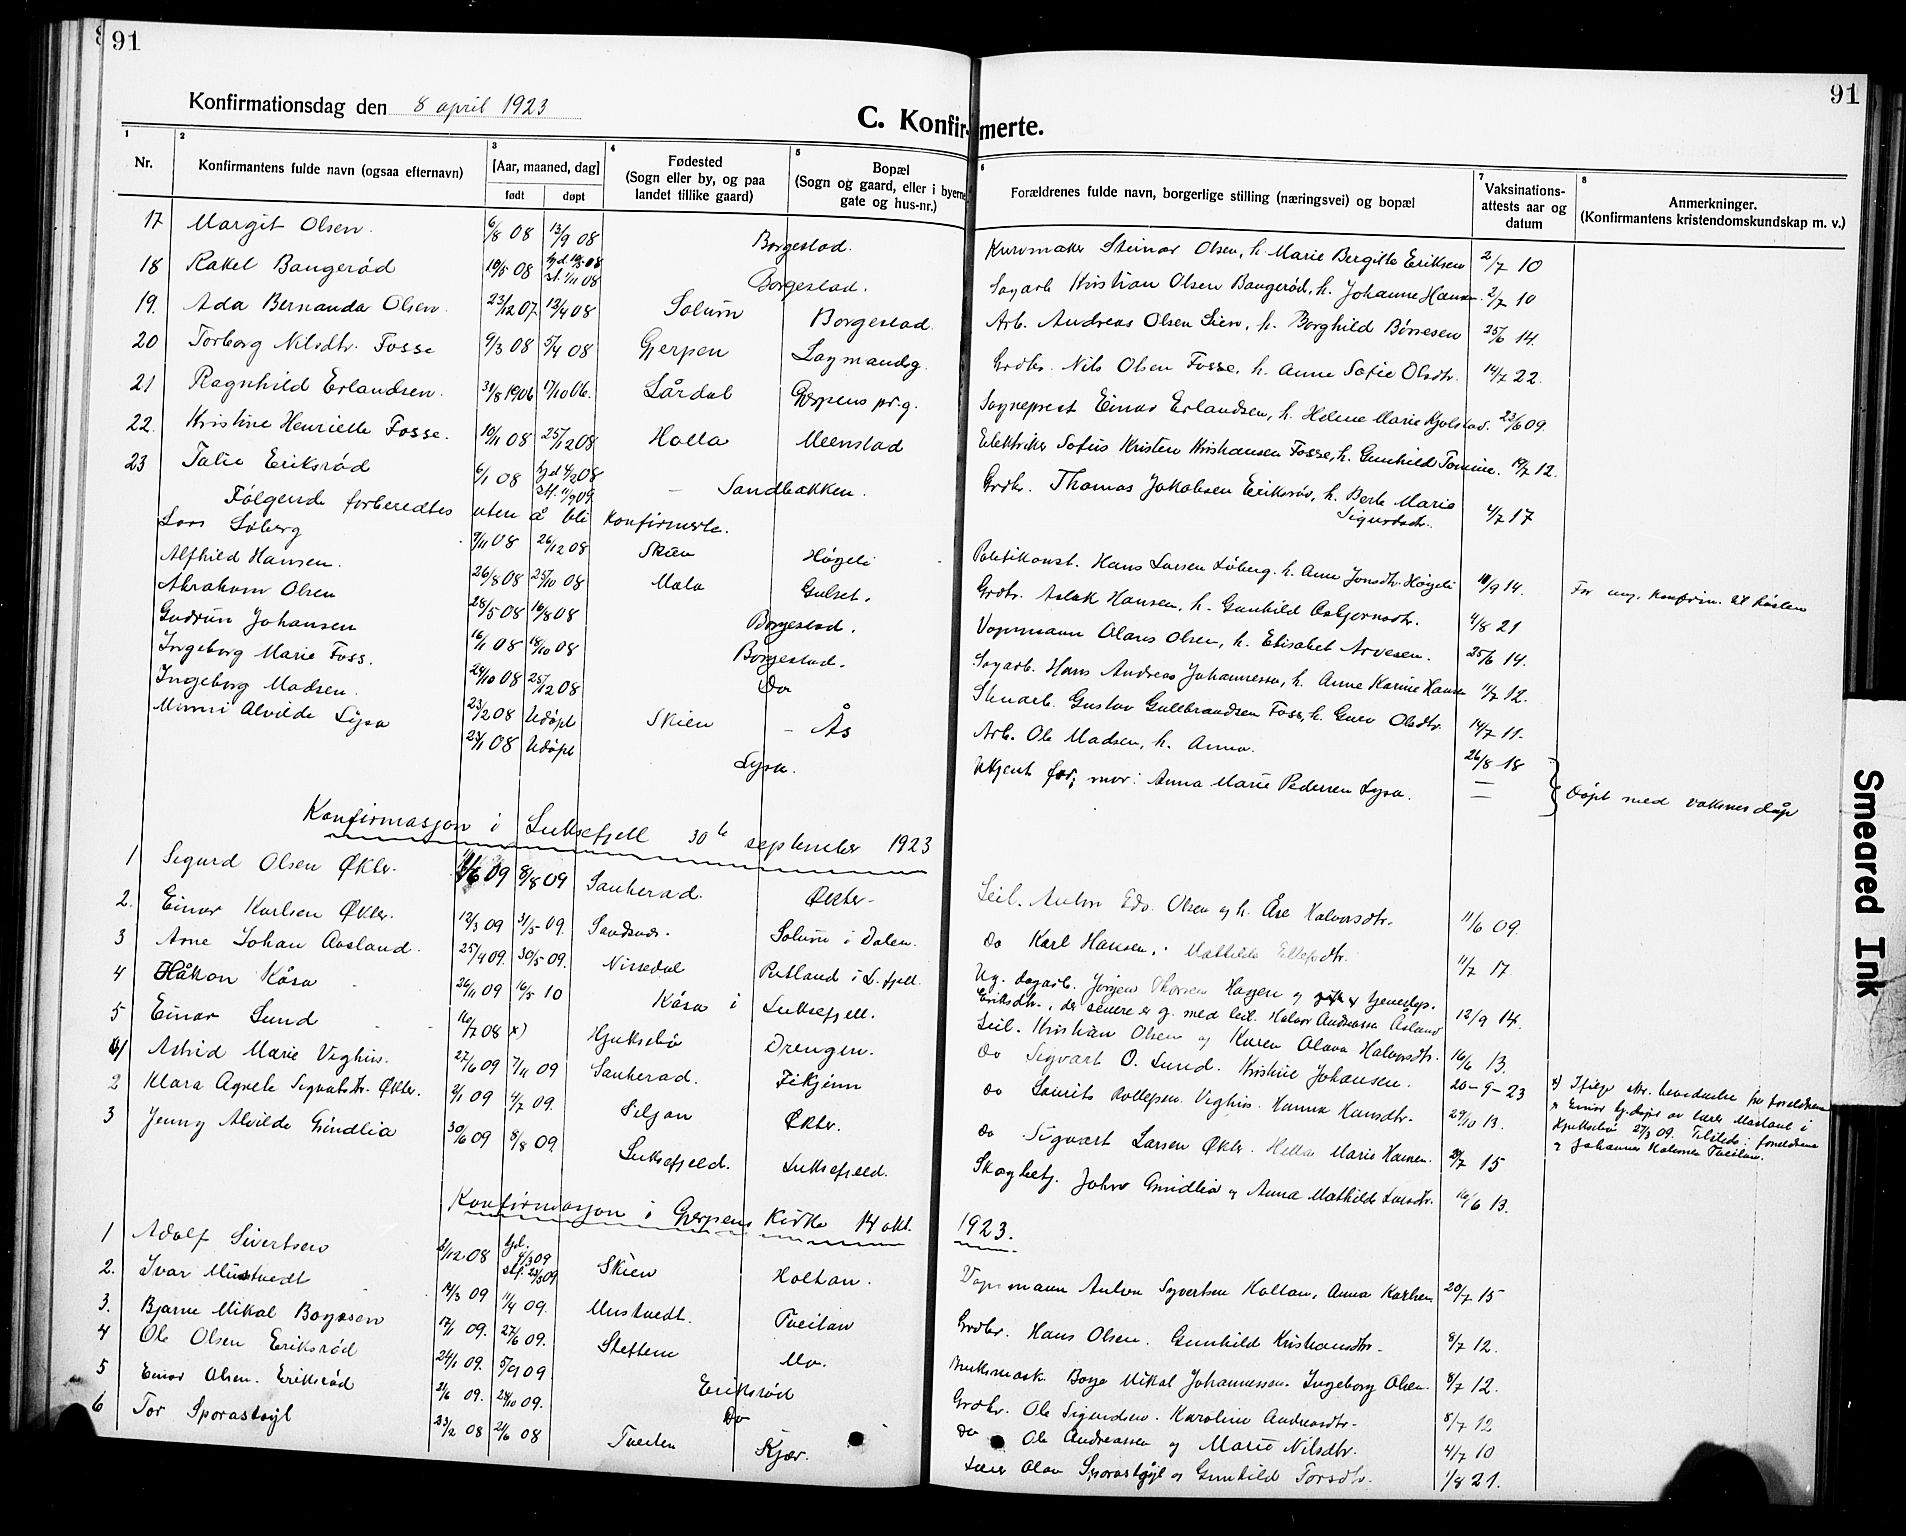 91
91
Konfirmationsdag den 8 april 1923
C. Konfirmerte.
1 2 3 4 5 6 7 8
Nr. Konfirmantens fulde navn (ogsaa efternavn) [Aar, maaned, dag] født døpt Fødested (Sogn eller by, og paa landet tillike gaard) Bopæl (Sogn og gaard, eller i byerne gate og hus-nr.) Forældrenes fulde navn, borgerlige stilling (næringsvei) og bopæl Vaksinations-attests aar og datum Anmerkninger. (Konfirmantens kristendomskundskap m. v.)
17 Margit Olsen. 6/8 08 13/9 08 Borgestad. Kurvmaker Steinar Olsen, h. Marie Bergitte Eriksen 2/7 10
18 Rakel Baugerød 10/5 08 st. 1/11 08 Borgestad. Sagarb. Kristian Olsen Baugerød, h. Johanne Hansen. 2/7 10
19. Ada Bernanda Olsen. 23/12 07 12/4 08 Solum Borgestad. Arb. Andreas Olsen Lien, h. Borghild Børresen 25/6 14.
20 Torborg Nilsdtr. Fosse 9/3 08 5/4 08 Gjerpen Lagmandsg. Grdbr. Nils Olsen Fosse, h. Anne Sofie Olsdtr. 14/7 22.
21 Ragnhild Erlandsen. 31/8 1906 7/10 06. Lårdal Gjerpens pr.g. Sogneprest Einar Erlandsen, h. Helene Marie Kjølstad. 23/6 09.
22. Kristine Henriette Fosse. 10/11 08 25/12 08 Holla Meenstad Elektriker Sofus Kristen Kristiansen Fosse, h. Gunhild Tomine. 19/7 12.
23 Talie Eriksrød 6/1 08 hj.d. 4/2 08 Sandbakken. Grdbr. Thomas Jakobsen Eriksrød, h. Berte Marie Sigurdsdtr. 4/7 17
Følgende forberedtes uten å bli konfirmerte.
Lars Løberg 7/11 08 26/12 08 Skien Høgeli Politikonst. Hans Larsen Løberg. h. Anne Jonsdtr. Høgeli 10/9 14. For ung, konfirm. til høsten
Alfhild Hansen. 26/8 08 25/10 08 Mæla Gulset. Grdbr. Aslak Hansen, h. Gunhild Asbjørnsdtr. 4/8 21
Abraham Olsen 28/5 08 16/8 08 Borgestad. Vognmann Olaus Olsen, h. Elisabet Arvesen. 25/6 14.
Gudrun Johansen 16/1 08 18/10 08 Borgestad. Sagarb. Hans Andreas Johannessen, h. Anne Karine Hansen 11/7 12.
Ingeborg Marie Foss. 24/10 08 25/12 08 Do Stenarb. Gustav Gulbrandsen Foss, h. Guro Olsdtr. 14/7 11.
Ingeborg Madsen. 23/2 08 Udøpt Skien – Ås Arb. Ole Madsen, h. Anna. 26/8 18
Minni Alvilde Lysa 23/1 08 Udøpt Lysa. Ukjent far; mor: Anna Marie Pedersen Lysa. — Døpt med voksnes dåp
Konfirmasjon i Luksefjell 30te september 1923
1 Sigurd Olsen Økter. 1/6 09 8/8 09 Sauherad. Økter Leil. Anton Edv. Olsen og h. Åse Halvorsdtr. 11/6 09.
2. Einar Karlsen Økter. 12/3 09 31/5 09. Sandsvær. Solum i Dalen. Do Karl Hansen, Mathilde Ellefsdtr. 11/7 17
3 Arne Johan Aasland. 25/4 09. 30/5 09. Nissedal Rutland i L.fjell. Ug. dagarb. Jørgen Thorsen Hagen og tjenestep. Eriksdtr., der senere er g. med leil. Halvor Andreassen Åsland 12/9 14.
4 Håkon Kåsa 26/11 09 16/5 10 Kåsa i Luksefjell. Leil. Kristian Olsen og Karen Olava Halvorsdtr. 16/6 13.
5 Einar Lund 16/7 08 x) Hjuksebø Drengen. Do Sigvart O. Lund. Kristine Johansen. 20-9-23 x) Ifølge skr. bevidnelse fra foreldrene er Einar hj.døpt av lærer Mæland i Hjuksebø 27/3 09. Tilstede: foreldrene og Johannes Halvorsen Tveitan.
1 Astrid Marie Veghus. 27/6 09 7/11 09 Sauherad. Fikjenn do Laurits Rollefsen Veghus. Hanna Hansdtr. 29/10 13.
2 Klara Agnete Sigvatsdtr. Økter. 2/1 09 4/7 09. Siljan Økter. do Sigvart Larsen Økter. Helene Marie Hansen. 15
3 Jenny Alvilde Grindlia 30/6 09 8/8 09 Luksefjeld. Luksefjeld. Skogbetj. Johan Grindlia og Anna Mathilde Larsdtr. 16/6 13.
Konfirmasjon i Gjerpens kirke 14 okt. 1923.
1 Adolf Sivertsen 3/12 08 hjd. 4/3 09 st.f. 21/3 09 Skien Holtan. Vognmann Anton Syvertsen Holtan, Anna Karlsen 20/7 15
2. Ivar Mustvedt 14/3 09 11/4 09. Mustvedt. Tveitan Grdbr. Hans Olsen. Gunhild Kristiansdtr. 8/7 12.
3. Bjarne Mikal Borgesen 17/1 09. 27/6 09. Steffens Mo. Bruksmask. Borge Mikal Johannessen. Ingeborg Olsen. 8/7 12.
4 Ole Olsen Eriksrød 24/1 09. 5/9 09 Eriksrød Grdbr. Ole Sigurdsen. Karoline Andreasdtr. 8/7 12
5 Einar Olsen. Eriksrød 2/6 09. 24/10 09. Do do Ole Andreassen og Marie Nilsdtr. 4/7 10
6 Tor Sporastøyl 23/2 08 21/6 08 Tveiten Kjær. Lærer Olav Sporastøyl og Gunhild Torsdtr. 1/8 21.
Smeared Ink